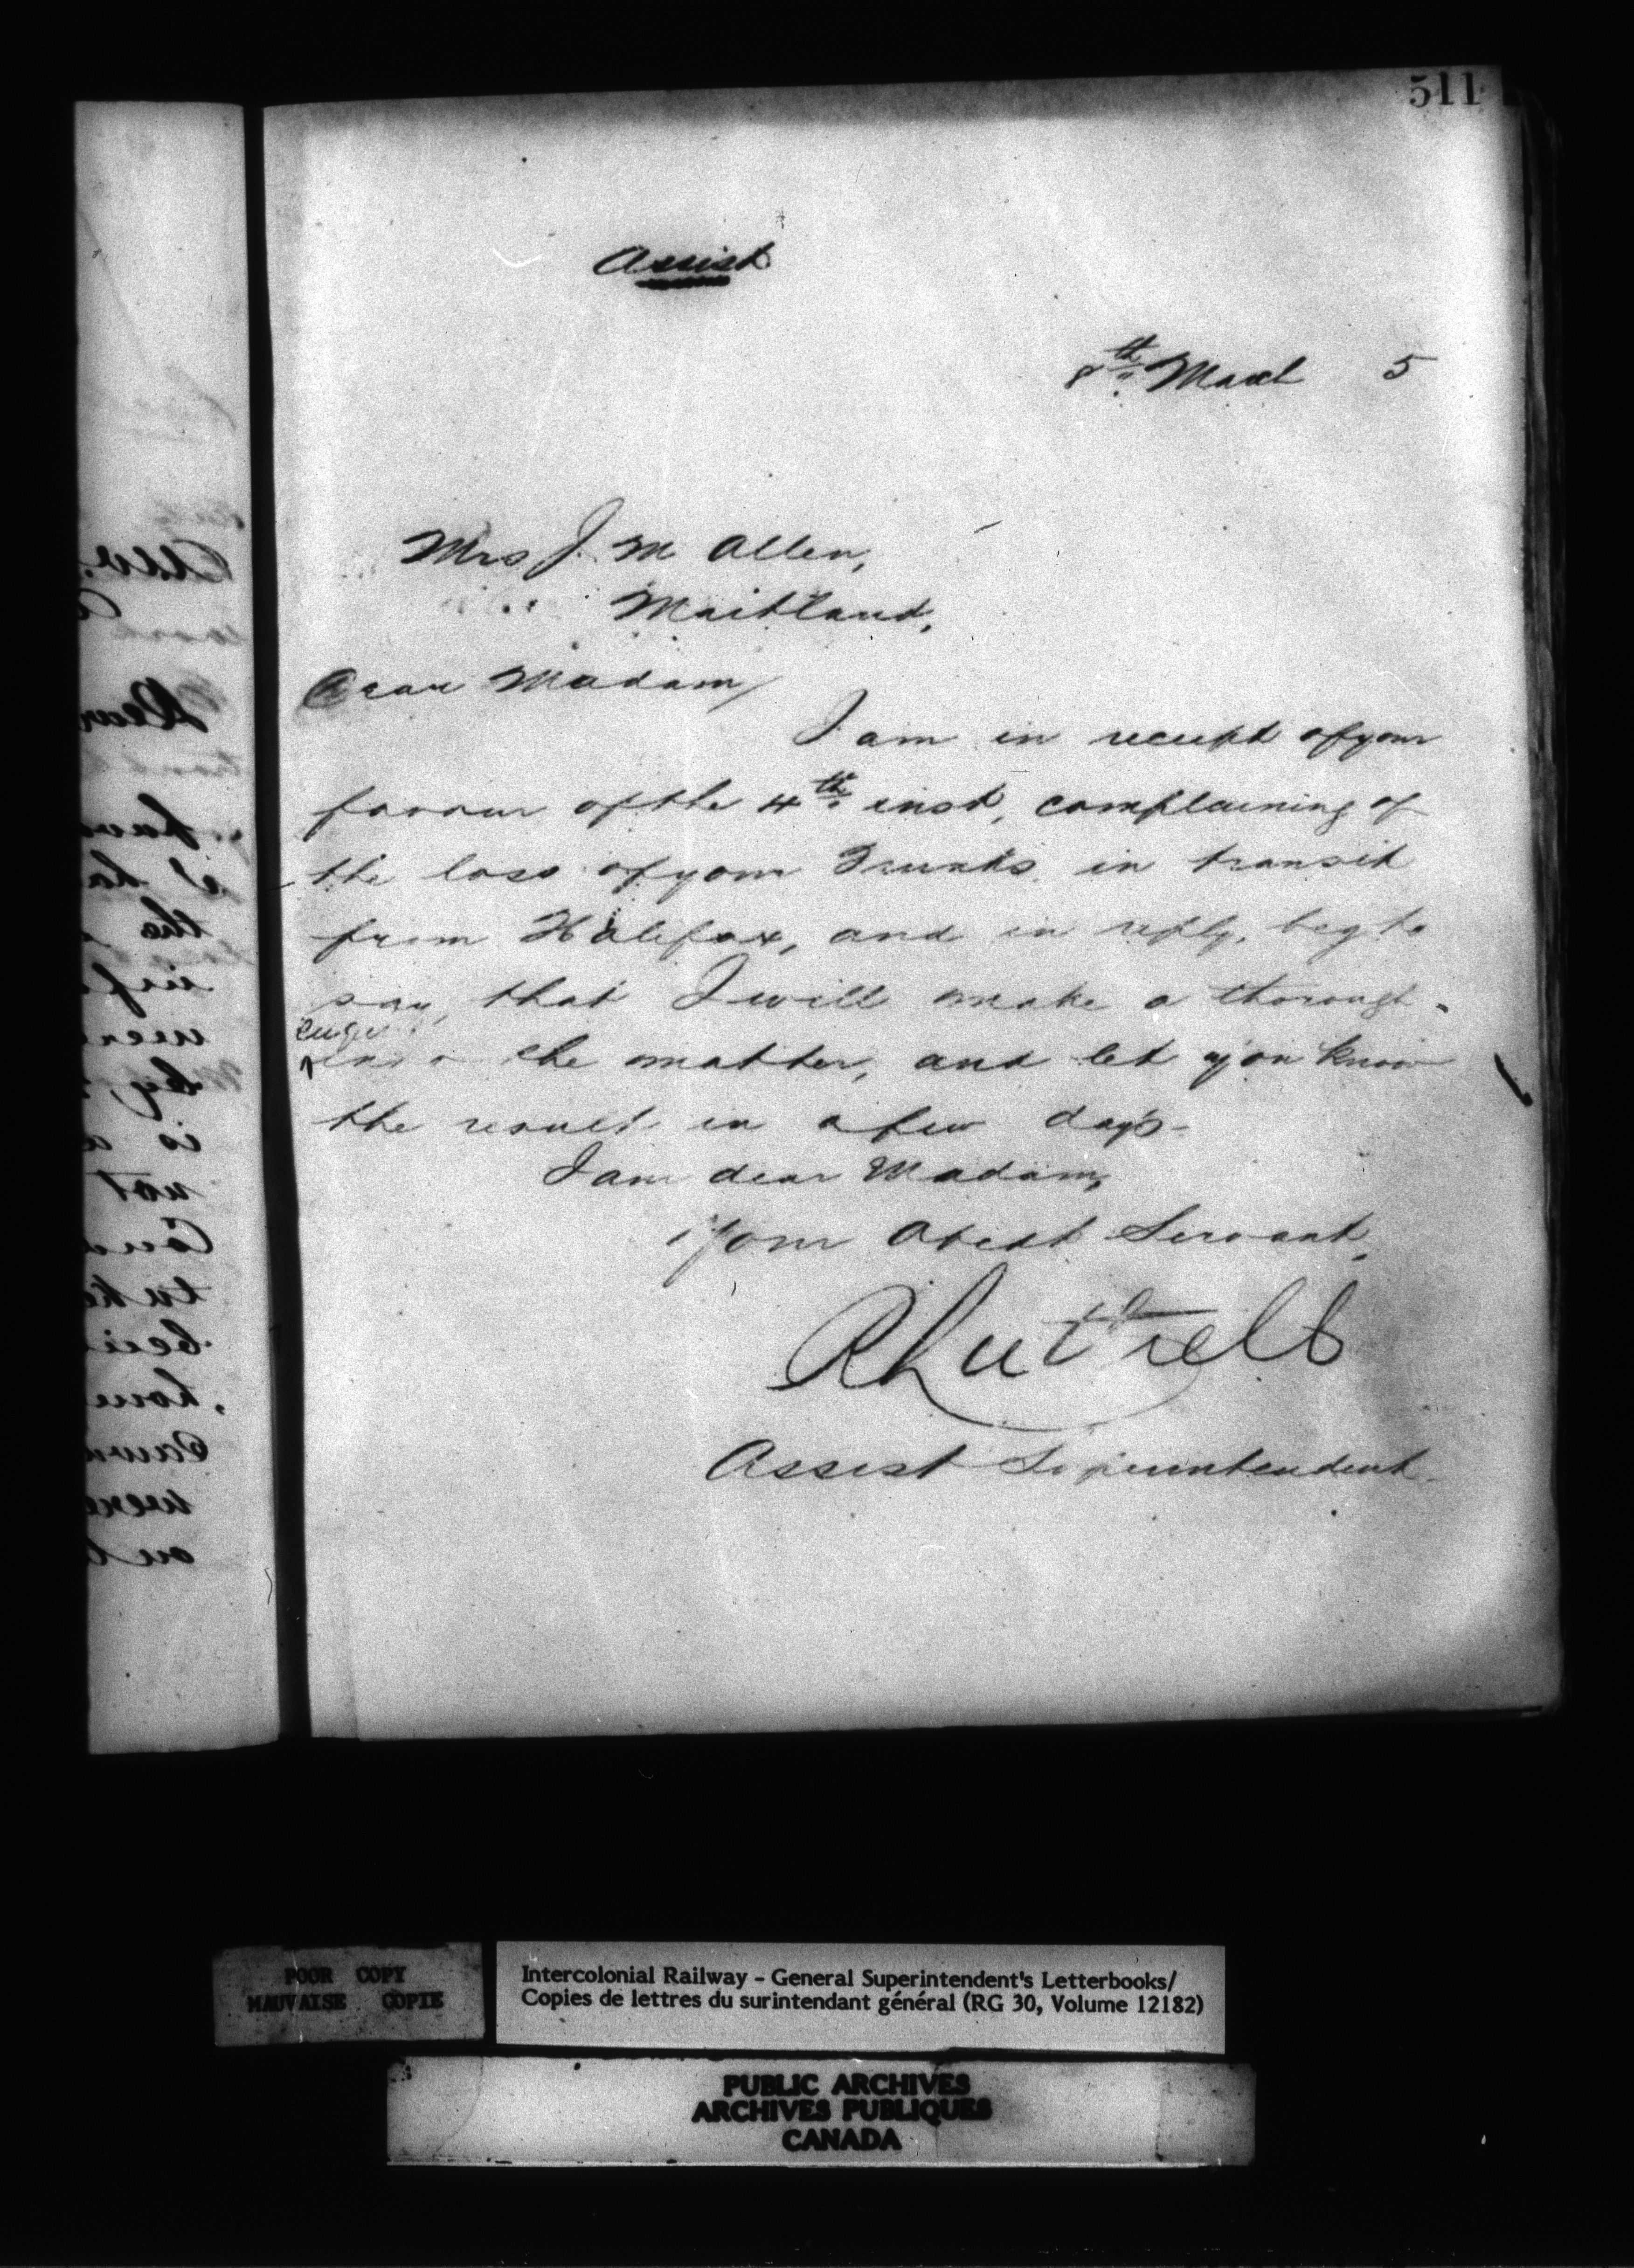 511
Assist
8th March 5
Mrs J. M Allen,
Maitland,
Dear Madam,
I am in receipt of your
favour of the 4th inst, complaining of
the loss of your Trunks, in transit
from Halifax, and in reply, beg to
say, that I will make a thorough
the matter, and let you know
the result in a few days-
I am dear Madam,
Your Obedt Servant,
R Luttrell
Assist Superintendent
POOR COPY
MAUVAISE COPIE
Intercolonial Railway - General Superintendent's Letterbooks/
Copies de lettres du surintendant général (RG 30, Volume 12182)
PUBLIC ARCHIVES
ARCHIVES PUBLIQUES
CANADA